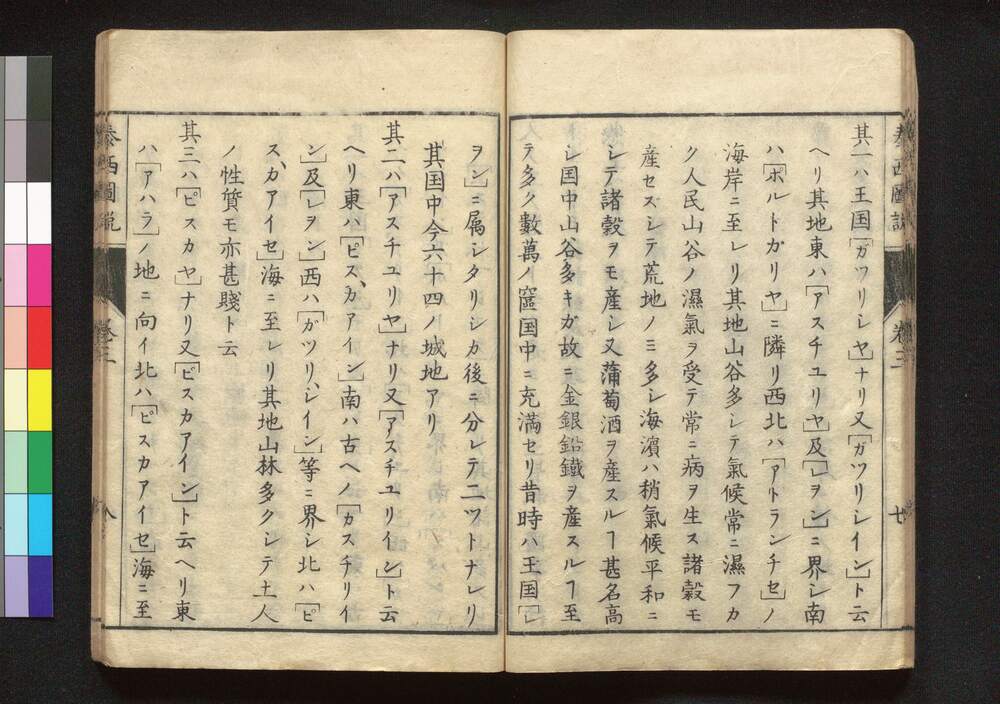 泰西圖説
卷三
其一ハ王国「ガツリシヤ」ナリ又「ガツリシイン」ト云
ヘリ其地東ハ「アスチユリヤ」及「レヲン」ニ界シ南
ハ「ポルトガリヤ」ニ隣リ西北ハ「アトランチセ」ノ
海岸ニ至レリ其地山谷多シテ氣候常ニ濕フカ
ク人民山谷ノ濕氣ヲ受テ常ニ病ヲ生ス諸穀モ
産セスシテ荒地ノミ多シ海濱ハ稍氣候平和ニ
シテ諸穀ヲモ産シ又蒲萄酒ヲ産スルヿ甚名高
シ国中山谷多キガ故ニ金銀鉛鐵ヲ産スルヿ至
テ多ク數萬ノ窟国中ニ充満セリ昔時ハ王国「レ
ヲン」ニ属シタリシカ後ニ分レテ二ツトナレリ
其国中今六十四ノ城地アリ
其二ハ「アスチユリヤ」ナリ又「アスチユリイン」ト云
ヘリ東ハ「ピスカアイン」南ハ古ヘノ「カスチリイ
ン」及「レヲン」西ハ「ガツリシイン」等ニ界シ北ハ「ピ
スカアイセ」海ニ至レリ其地山林多クシテ土人
ノ性質モ亦甚賤ト云
其三ハ「ピスカヤ」ナリ又「ピスカアイン」ト云ヘリ東
ハ「アハラ」ノ地ニ向イ北ハ「ピスカアイセ」海ニ至
泰西圖説
卷三